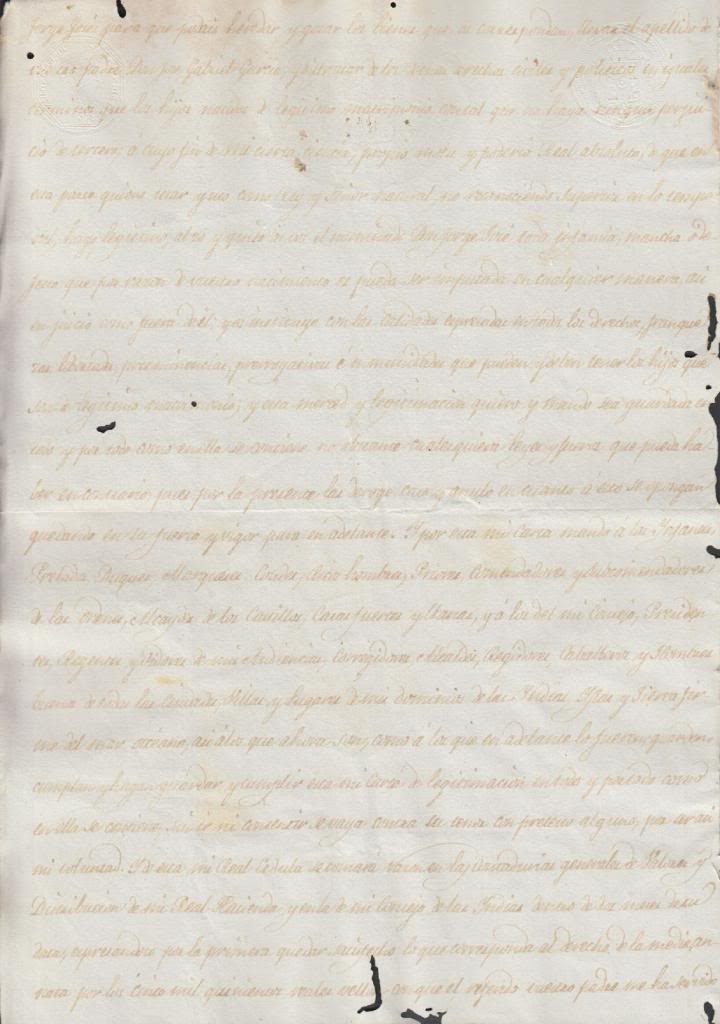 Jorge José para que podais heredar y gozar los bienes que os correspondan, llevar el apellido de
vuestro padre Don José Gabriel García, y disfrutar de los demas derechos civiles y politicos en iguales
terminos que los hijos nacidos de legitimo matrimonio con tal que no haya ningun perjui
cio de tercero; a cuyo fin de mi cierta ciencia, propio motu y poderio Real absoluto, de que en
esta parte quiero usar y uso como Rey y Señor natural, no reconociendo Superior en lo tempo
ral, hago legitimo, alzo y quito á vos el mencionado Don Jorge José toda infamia, mancha ó de
fecto que por razon de vuestro nacimiento os pueda ser imputada en cualquier manera, asi
en juicio como fuera de él; y os instituyo con las calidades expresadas en todos los derechos, franque
zas, libertades, preeminencias, prerrogativas é inmunidades que pueden y deben tener los hijos que
son de legitimo matrimonio; y esta merced y legitimacion quiero y mando sea guardada en
todo y por todo como en ella se contiene no obstante cualesquiera leyes y fueros que pueda ha
ber en contrario, pues por la presente las derogo, caso y anulo en cuanto á esto se opongan
quedando en su fuerza y vigor para en adelante. Y por esta mi Carta mando á los Infantes,
Prelados, Duques, Marqueses, Condes, Ricos hombres, Priores, Comendadores y Subcomendadores
de las Ordenes, Alcaydes de los Castillos, Casas fuertes y llanas, y á los del mi Consejo, Presiden
tes, Regentes y Oidores de mis Audiencias, Corregidores, Alcaldes, Regidores, Caballeros y Hombres
buenos de todas las Ciudades, Villas, y Lugares de mis dominios de las Indias, Islas y Tierra fir
me del mar océano, asi á los que ahora son, como á los que en adelante lo fueren, guarden
cumplan y hagan guardar y cumplir esta mi Carta de legitimacion en todo y por todo como
en ella se contiene, sin ir ni consentir se vaya contra su tenor con pretexto alguno, por ser asi
mi voluntad. Y de esta mi Real Cedula se tomará razon en las Contadurias generales de Valores y
Distribucion de mi Real Hacienda y en la de mi Consejo de las Indias dentro de dos meses de su
data, expresandose por la primera quedar satisfecho lo que corresponda al derecho de la media an
nata por los cinco mil quinientos reales vellon con que el referido vuestro padre me ha servido